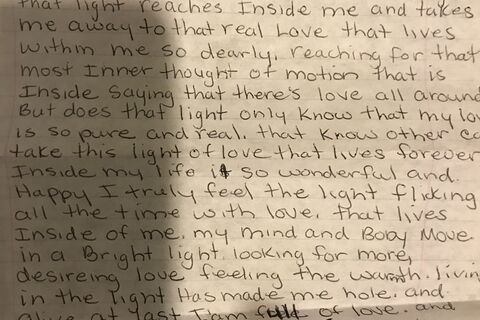 that light reaches Inside me and takes
me away to that real Love that lives
within me so dearly. reaching for that
most Inner thought of motion that is
Inside saying that there's love all around
But does that light only know that my lov
is so pure and real. that know other ca
take this light of love that lives forever
Inside my life is so wonderful and.
Happy I truly feel the light flicking
all the time with love. that lives
Inside of me. my mind and Body Move
in a Bright light. looking for more,
desireing love feeling the warmth. livin
in the light Has made me hole. and
alive at last I am full of love. and